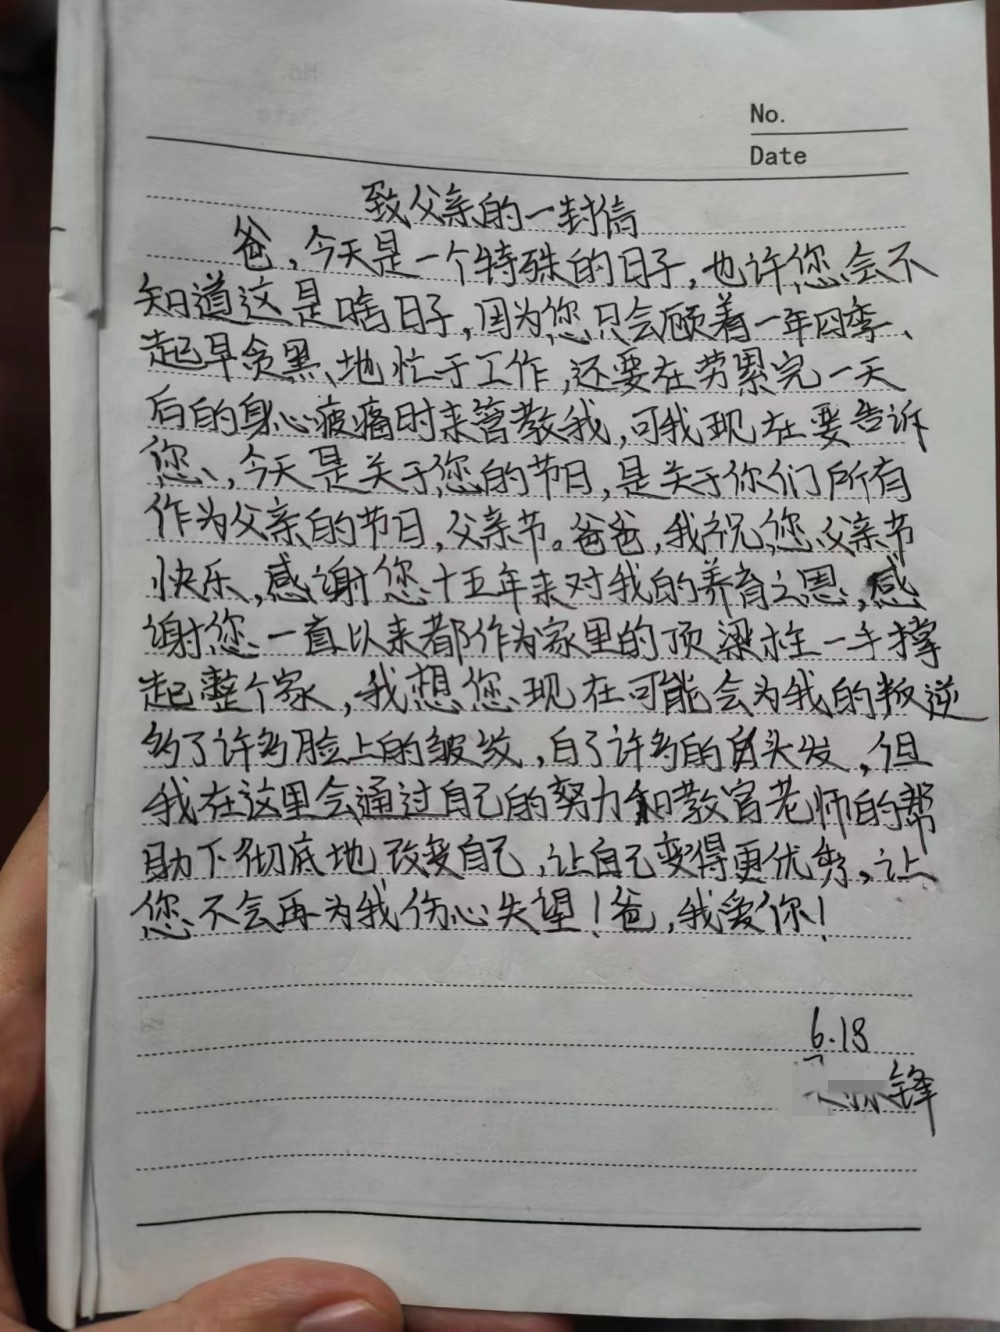 No.
Date
致父亲的一封信
爸,今天是一个特殊的日子,也许您会不
知道这是啥日子,因为您只会顾着一年四季、
起早贪黑地忙于工作,还要在劳累完一天
后的身心疲痛时来管教我,可我现在要告诉
您,今天是关于您的节日,是关于你们所有
作为父亲的节日,父亲节。爸爸,我祝您父亲节
快乐,感谢您十五年来对我的养育之恩,感
谢您一直以来都作为家里的顶梁柱一手撑
起整个家,我想您现在可能会为我的叛逆
多了许多脸上的皱纹,白了许多的白头发,但
我在这里会通过自己的努力和教官老师的帮
助下彻底地改变自己,让自己变得更优秀。让
您不会再为我伤心失望!爸,我爱你!
6.18
锋